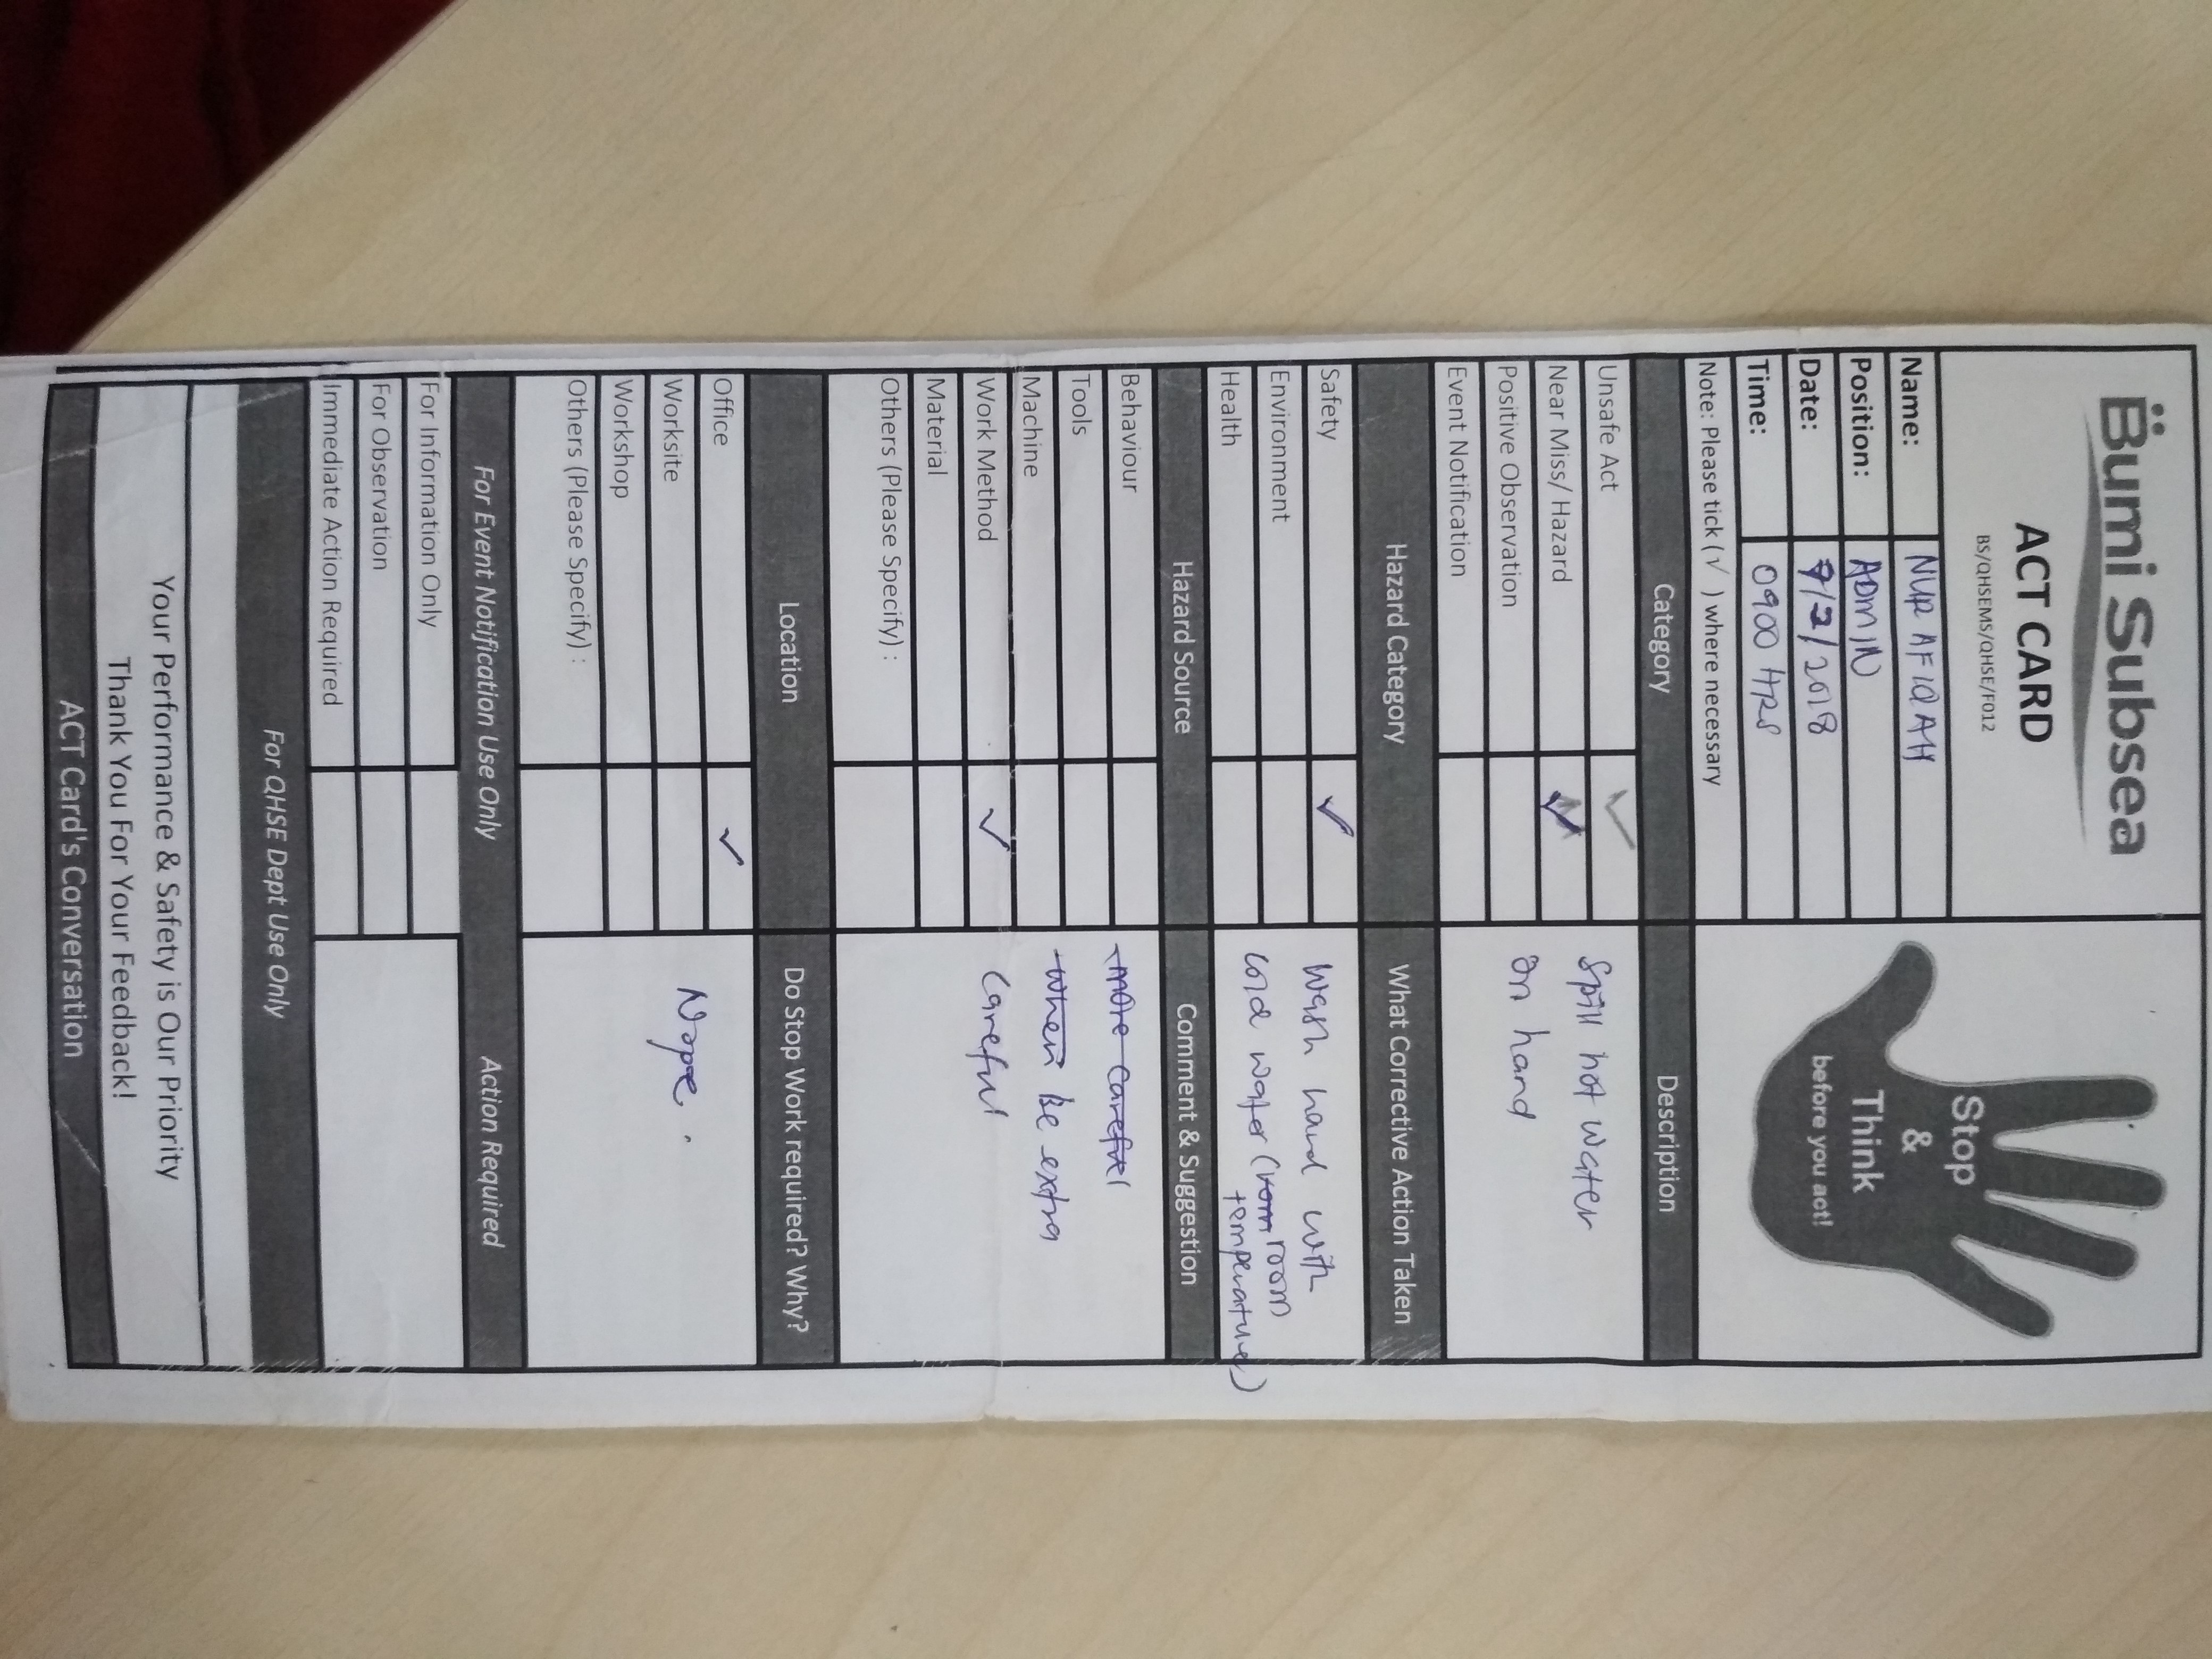 Bumi Subsea
ACT CARD
BS/QHSEMS/QHSE/F012
Stop
&
Think
before you act!
Name: NUR AFIQAH
Position: ADMIN
Date: 7/2/2018
Time: 0900 HRS
Note: Please tick (√ ) where necessary
Category Description
Unsafe Act ✓ Spill hot water
Near Miss/ Hazard ✓
Positive Observation on hand
Event Notification
Hazard Category What Corrective Action Taken
Safety ✓ Wash hand with
Environment cold water (room room
Health temperature)
Hazard Source Comment & Suggestion
Behaviour more careful
Tools
Machine when Be extra
Work Method ✓ careful
Material
Others (Please Specify) :
Location Do Stop Work required? Why?
Office ✓
Worksite Nope.
Workshop
Others (Please Specify) :
For Event Notification Use Only Action Required
For Information Only
For Observation
Immediate Action Required
For QHSE Dept Use Only
Your Performance & Safety is Our Priority
Thank You For Your Feedback!
ACT Card's Conversation